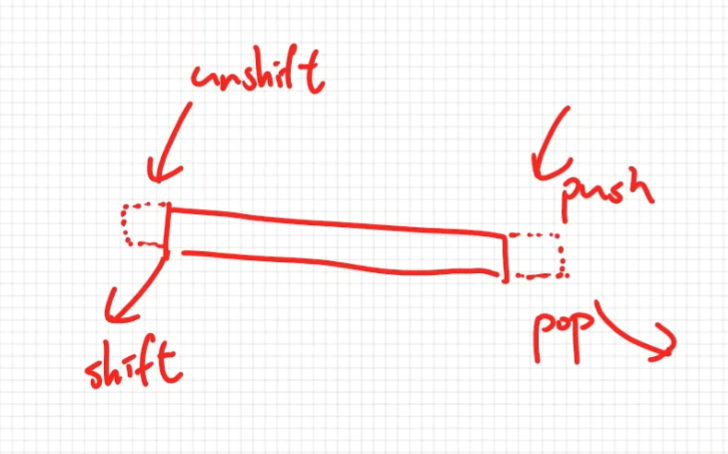 unshift
push
shift
pop